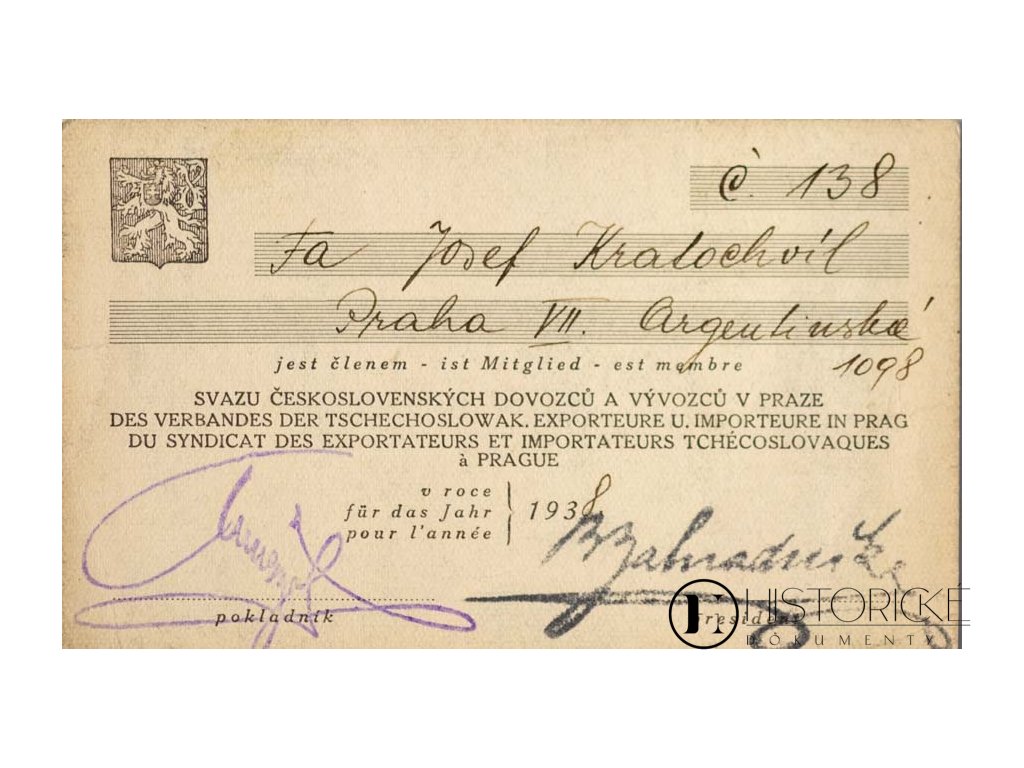 č. 138
Fa Josef Kratochvíl
Praha VII. Argentinská
1098
jest členem - ist Mitglied - est membre
SVAZU ČESKOSLOVENSKÝCH DOVOZCŮ A VÝVOZCŮ V PRAZE
DES VERBANDES DER TSCHECHOSLOWAK. EXPORTEURE U. IMPORTEURE IN PRAG
DU SYNDICAT DES EXPORTATEURS ET IMPORTATEURS TCHÉCOSLOVAQUES
à PRAGUE
v roce
für das Jahr 1938
pour l'année
pokladník
President
HISTORICKÉ
DOKUMENTY